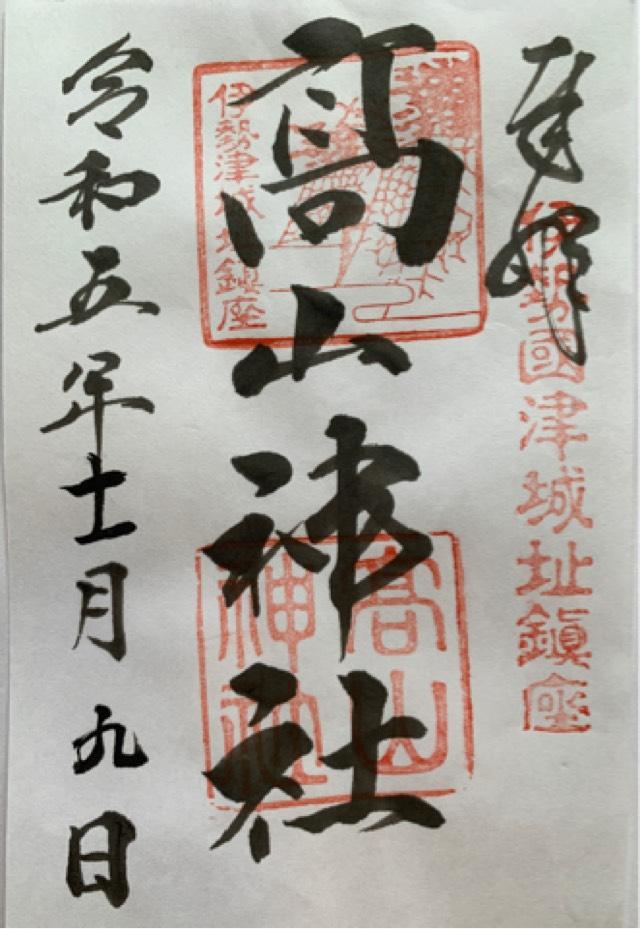 奉拝
伊勢國津城址鎮座
伊勢津城址鎮座
高山神社
高山
神社
令和五年十一月九日